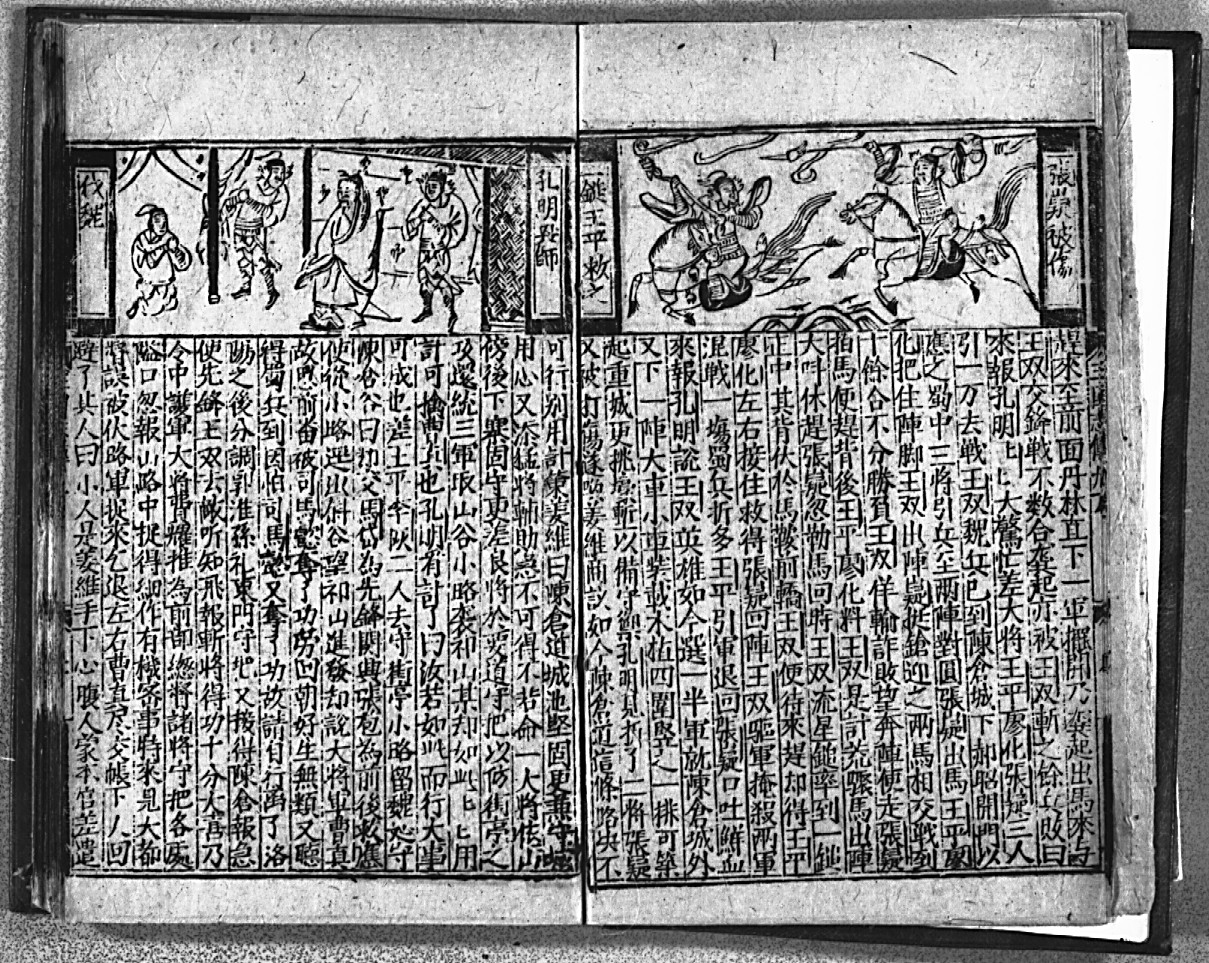 張嶷被傷
一鎚王平救之
趕來至前面丹林直下一軍擺開乃龔起出馬來与
王双交鋒戰不数合龔起亦被王双斬之餘兵敗回
來報孔明匕匕大驚忙差大将王平廖化張嶷三人
引一万去戰王双魏兵已到陳倉城下郝昭開門以
應之蜀中三将引兵至兩陣對圓張嶷出馬王平廖
化把住陣脚王双出陣嶷挺鎗迎之兩馬相交戰到
十餘合不分勝負王双佯輸詐敗望奔陣便走張嶷
拍馬便趕背後王平廖化料王双是計荒驟馬出陣
大呌休趕張嶷忽勒馬回時王双流星鎚率到一鎚
正中其背伏於馬鞍前轎王双便待來趕却得王平
廖化左右接住救得張嶷回陣王双驅軍掩殺兩軍
混戰一塲蜀兵折多王平引軍退回張嶷口吐鮮血
來報孔明說王双英雄如今選一半軍就陳倉城外
又下一陣大車小車裝載木植四圍竪之一排可築
起重城更挑壕塹以備守禦孔明見折了二将張嶷
又被打傷遂喚姜維商議如今陳倉道這條路央不
孔明班師
伐魏
可行别用計策姜維曰陳倉道城池堅固更兼守城
用心又添猛将輔助急不可得不若命一大将依山
傍後下寨固守更差良将於要道守把以防街亭之
攻還統三軍取山谷小路袭祁山某却如此匕匕用
計可擒曹真也孔明有討了曰汝若如此而行大事
可成也差王平李恢二人去守街亭小路留魏延守
陳谷谷曰却交馬岱為先鋒関興張苞為前後救應
使從小路運出斜谷望祁山進發却說大将軍曹真
故思前畨被司馬懿奪了功勞回朝好生無顏又聽
得蜀兵到因怕司馬懿又奪了功故請自行离了洛
陽之後分調郭淮孫礼東門守把又撥得陳倉報急
使先鋒王双去戰听知飛報斬将得功十分大喜乃
令中護軍大将費耀推為前部總督諸将守把各處
隘口忽報山路中捉得細作有機密事特來見大都
督誤被伏路軍捉來乞退左右曹真尽交帳下人回
避了其人曰小人是姜維手下心腹人蒙本官差遣